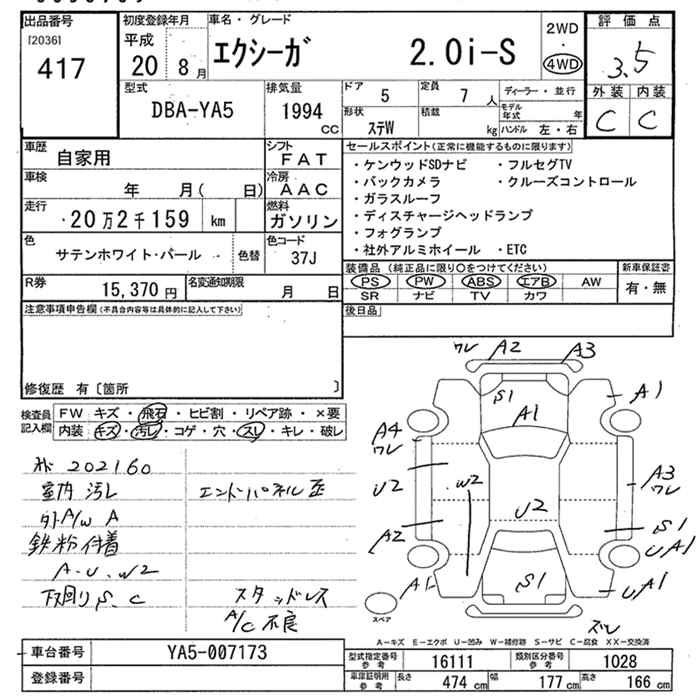 出品番号
[2036]
417
初度登録年月
平成
20年 8月
車名・グレード
エクシーガ 2.0i-S
2WD
・
4WD
評価点
3.5
外装 内装
C C
型式
DBA-YA5
排気量
1994
CC
ドア 5
定員 7人
形状 ステW
積載 kg
ディーラー・並行
モデル年式 年
ハンドル 左・右
車歴
自家用
シフト
FAT
車検
年 月( 日)
冷房
AAC
走行
20万2千159 km
燃料
ガソリン
色
サテンホワイト・パール
色替
色コード
37J
R券
15,370円
名変通知期限
月 日
セールスポイント(正常に機能するものに限ります)
・ケンウッドSDナビ ・フルセグTV
・バックカメラ ・クルーズコントロール
・ガラスルーフ
・ディスチャージヘッドランプ
・フォグランプ
・社外アルミホイール ・ETC
装備品(純正品に限り○をつけてください)
PS PW ABS エアB AW
SR ナビ TV カワ
新車保証書
有・無
後日品
注意事項申告欄(不具合内容等は具体的に記入して下さい)
修復歴 有〔箇所 〕
検査員記入欄
FW キズ・飛石・ヒビ割・リペア跡・×要
内装 キズ・汚レ・コゲ・穴・スレ・キレ・破レ
202160
室内汚レ
エンドパネル歪
外A/W A
鉄粉付着
A.U.W2
下回りS.C
スタッドレス
A/C不良
ワレ A2 A3
S1
A1
A1
A4
ワレ
U2
W2
U2
A3
ワレ
A2
S1
UA1
A1
S1
UA1
スペア
スレ
A-キズ E-エクボ U-凹み W-補修跡 S-サビ C-腐食 XX-交換済
車台番号 YA5-007173
登録番号
型式指定番号 参考 16111
類別区分番号 参考 1028
車庫証明用 参考 長さ 474cm 幅 177cm 高さ 166cm